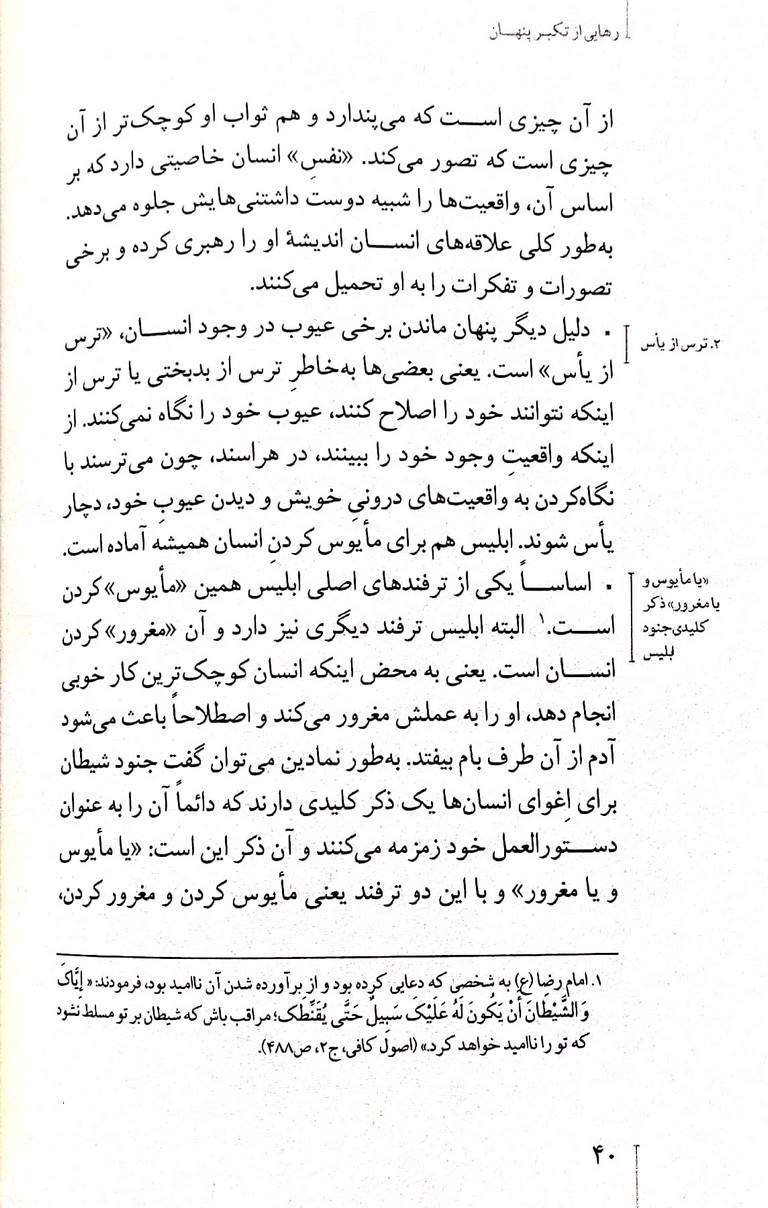 رهایی از تکبر پنهان
از آن چیزی است که می‌پندارد و هم ثواب او کوچک‌تر از آن
چیزی است که تصور می‌کند. «نفسِ» انسان خاصیتی دارد که بر
اساس آن، واقعیت‌ها را شبیه دوست داشتنی‌هایش جلوه می‌دهد.
به‌طور کلی علاقه‌های انسان اندیشهٔ او را رهبری کرده و برخی
تصورات و تفکرات را به او تحمیل می‌کنند.
۲. ترس از یأس
• دلیل دیگر پنهان ماندن برخی عیوب در وجود انسان، «ترس
از یأس» است. یعنی بعضی‌ها به‌خاطرِ ترس از بدبختی یا ترس از
اینکه نتوانند خود را اصلاح کنند، عیوب خود را نگاه نمی‌کنند. از
اینکه واقعیتِ وجود خود را ببینند، در هراسند، چون می‌ترسند با
نگاه‌کردن به واقعیت‌های درونیِ خویش و دیدن عیوبِ خود، دچار
یأس شوند. ابلیس هم برای مأیوس کردنِ انسان همیشه آماده است.
«یا مأیوس و
یا مغرور» ذکر
کلیدی جنود
ابلیس
• اساساً یکی از ترفندهای اصلی ابلیس همین «مأیوس» کردن
است.۱ البته ابلیس ترفند دیگری نیز دارد و آن «مغرور» کردن
انسان است. یعنی به محض اینکه انسان کوچک‌ترین کار خوبی
انجام دهد، او را به عملش مغرور می‌کند و اصطلاحاً باعث می‌شود
آدم از آن طرف بام بیفتد. به‌طور نمادین می‌توان گفت جنود شیطان
برای اِغوای انسان‌ها یک ذکر کلیدی دارند که دائماً آن را به عنوان
دستورالعمل خود زمزمه می‌کنند و آن ذکر این است: «یا مأیوس
و یا مغرور» و با این دو ترفند یعنی مأیوس کردن و مغرور کردن،
۱. امام رضا (ع) به شخصی که دعایی کرده بود و از برآورده شدن آن ناامید بود، فرمودند: «إِیَّاکَ
وَ الشَّیْطَانَ أَنْ یَکُونَ لَهُ عَلَیْکَ سَبِیلٌ حَتَّی یُقَنِّطَک؛ مراقب باش که شیطان بر تو مسلط نشود
که تو را ناامید خواهد کرد.» (اصول کافی، ج۲، ص۴۸۸).
۴۰